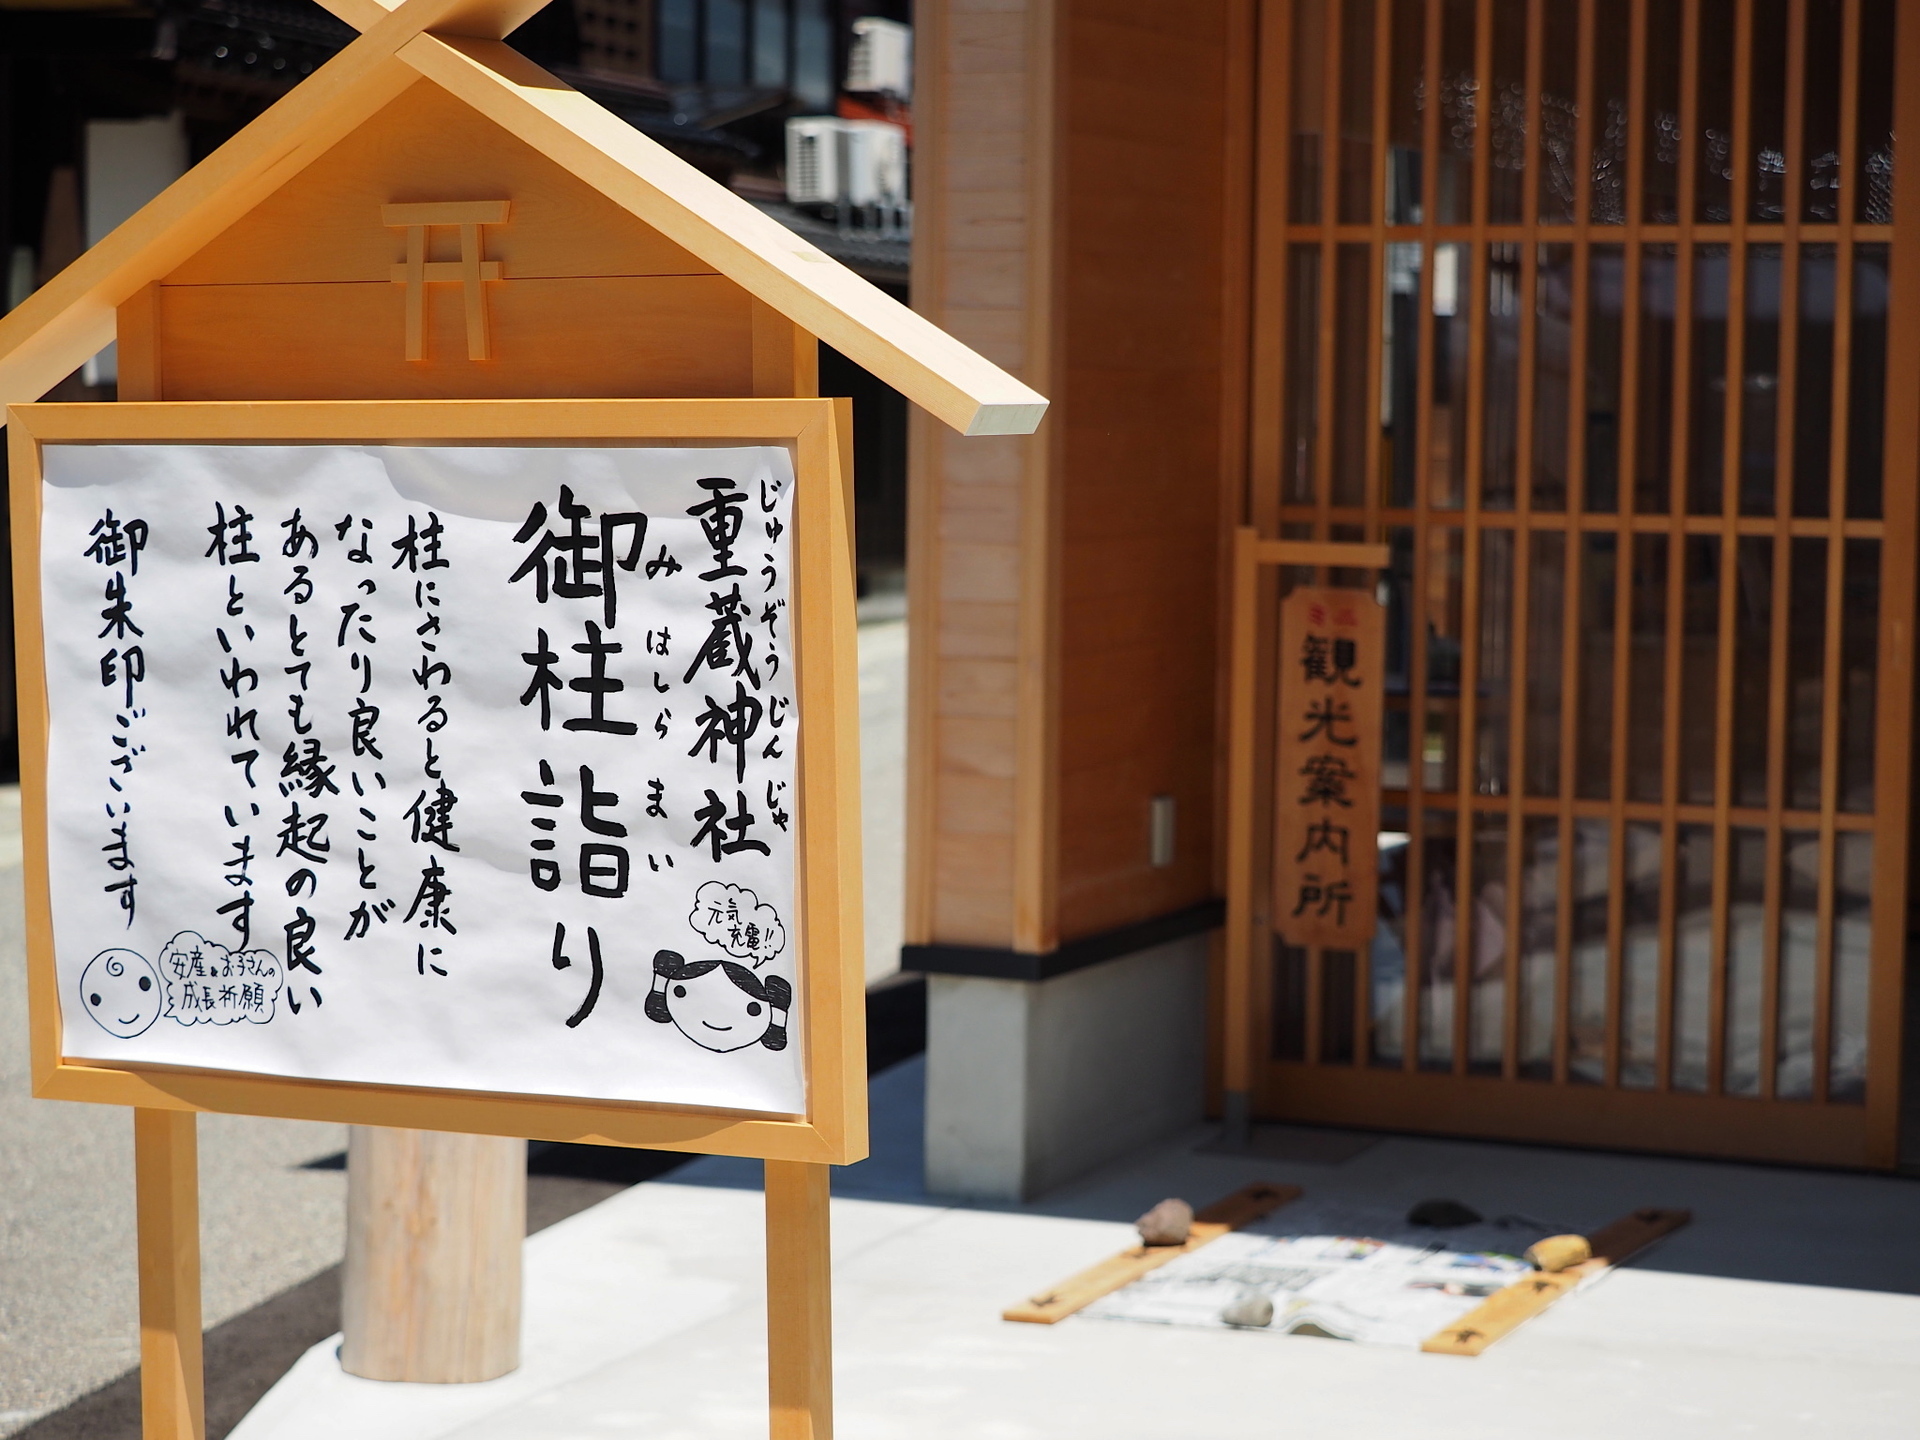 じゅうぞうじんじゃ
重蔵神社
みはしらまい
御柱詣り
柱にさわると健康に
なったり良いことが
あるとても縁起の良い
柱といわれています
御朱印ございます
元気
充電!!
安産&お子さんの
成長祈願
ミニ
観光案内所